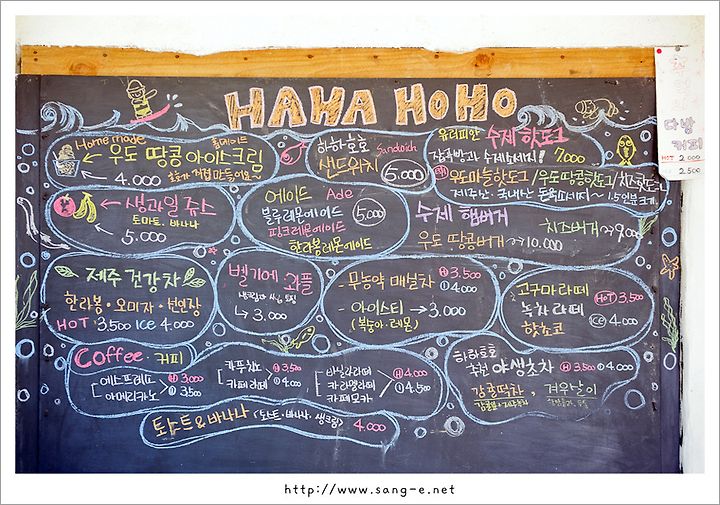 HAHA HOHO
Home made 홈메이드
← 우도 땅콩 아이스크림
← 4.000
하하호호 Sandwich
샌드위치 5.000
유러피안 수제 핫도그
7.000
우도마늘핫도그/우도땅콩핫도그/치즈핫도그
제주산·국내산 돈육
← 생과일 쥬스
토마토. 바나나
→ 5.000
에이드 Ade
블루레몬에이드 5.000
핑크레몬에이드
한라봉레몬에이드
수제 햄버거
우도 땅콩버거 → 10.000
치즈버거 → 9.000
제주 건강차
한라봉·오미자·
HOT 3.500 ICE 4.000
벨기에 와플
↳ 3.000
- 무농약 매실차 H 3.500 I 4.000
- 아이스티 → 3.000
(복숭아·레몬)
고구마라떼
녹차라떼
핫초코
HOT 3.500
ICE 4.000
Coffee·커피
에스프레소 H 3.000
아메리카노 I 3.500
카푸치노 H 3.500
카페라떼 I 4.000
바닐라라떼 H 4.000
카라멜라떼 I 4.500
카페모카
하하호호
추천 야생초차 H 3.500 I 4.000
감귤피차, 겨우살이
토스트&바나나 (토스트·바나나·생크림) 4.000
다방
커피
HOT 2.000
2.500
http://www.sang-e.net